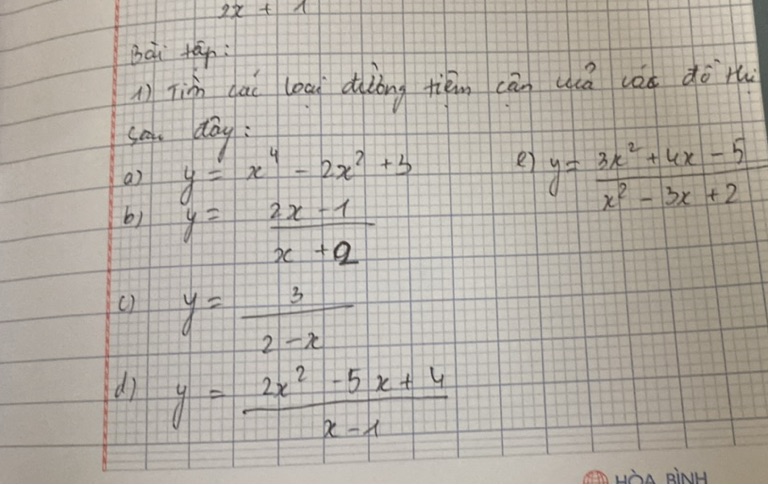 2x + 1
Bài tập:
1) Tìm các loại đường tiệm cận của các đồ thị
sau đây:
a) y = x⁴ - 2x² + 3
e) y = (3x² + 4x - 5)/(x² - 3x + 2)
b) y = (2x - 1)/(x + 2)
c) y = 3/(2 - x)
d) y = (2x² - 5x + 4)/(x - 1)
HÒA BÌNH